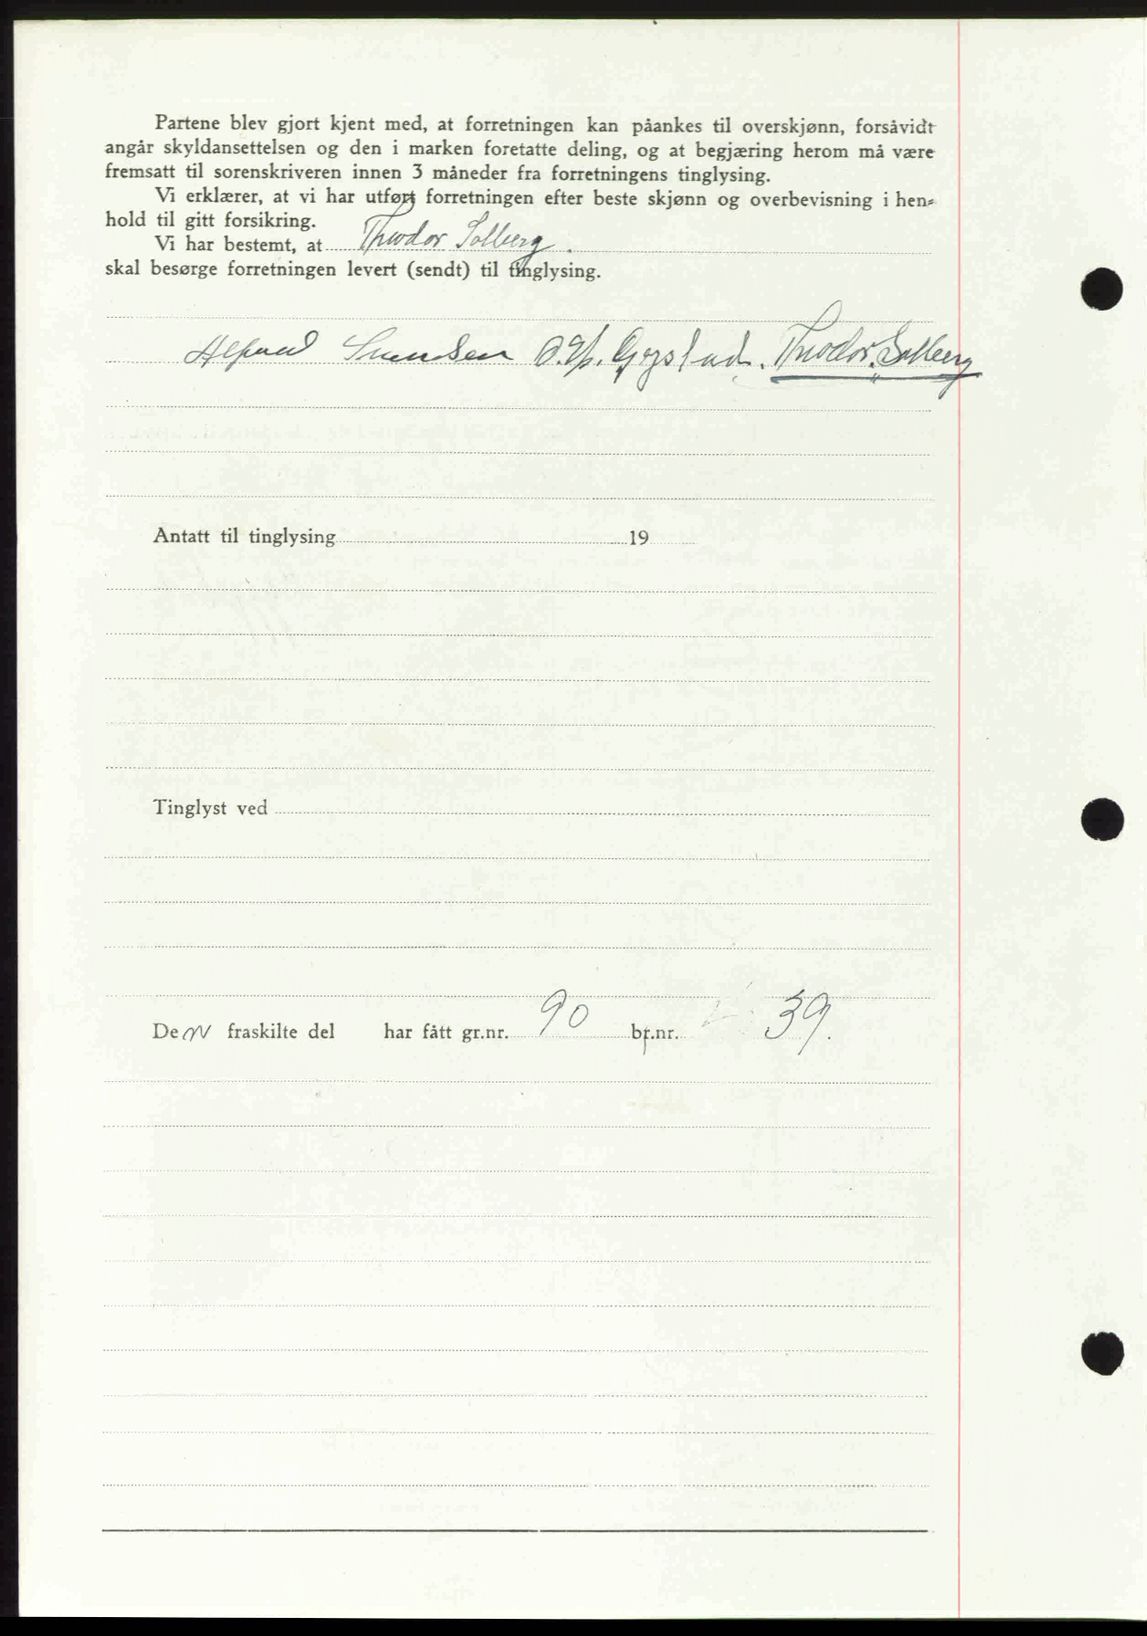 Partene blev gjort kjent med, at forretningen kan påankes til overskjønn, forsåvidt
angår skyldansettelsen og den i marken foretatte deling, og at begjæring herom må være
fremsatt til sorenskriveren innen 3 måneder fra forretningens tinglysing.
Vi erklærer, at vi har utført forretningen efter beste skjønn og overbevisning i hen-
hold til gitt forsikring.
Vi har bestemt, at Theodor Solberg.
skal besørge forretningen levert (sendt) til tinglysing.
Theodor Solberg
Antatt til tinglysing 19
Tinglyst ved
Den fraskilte del har fått gr.nr. 90 br.nr. 39.